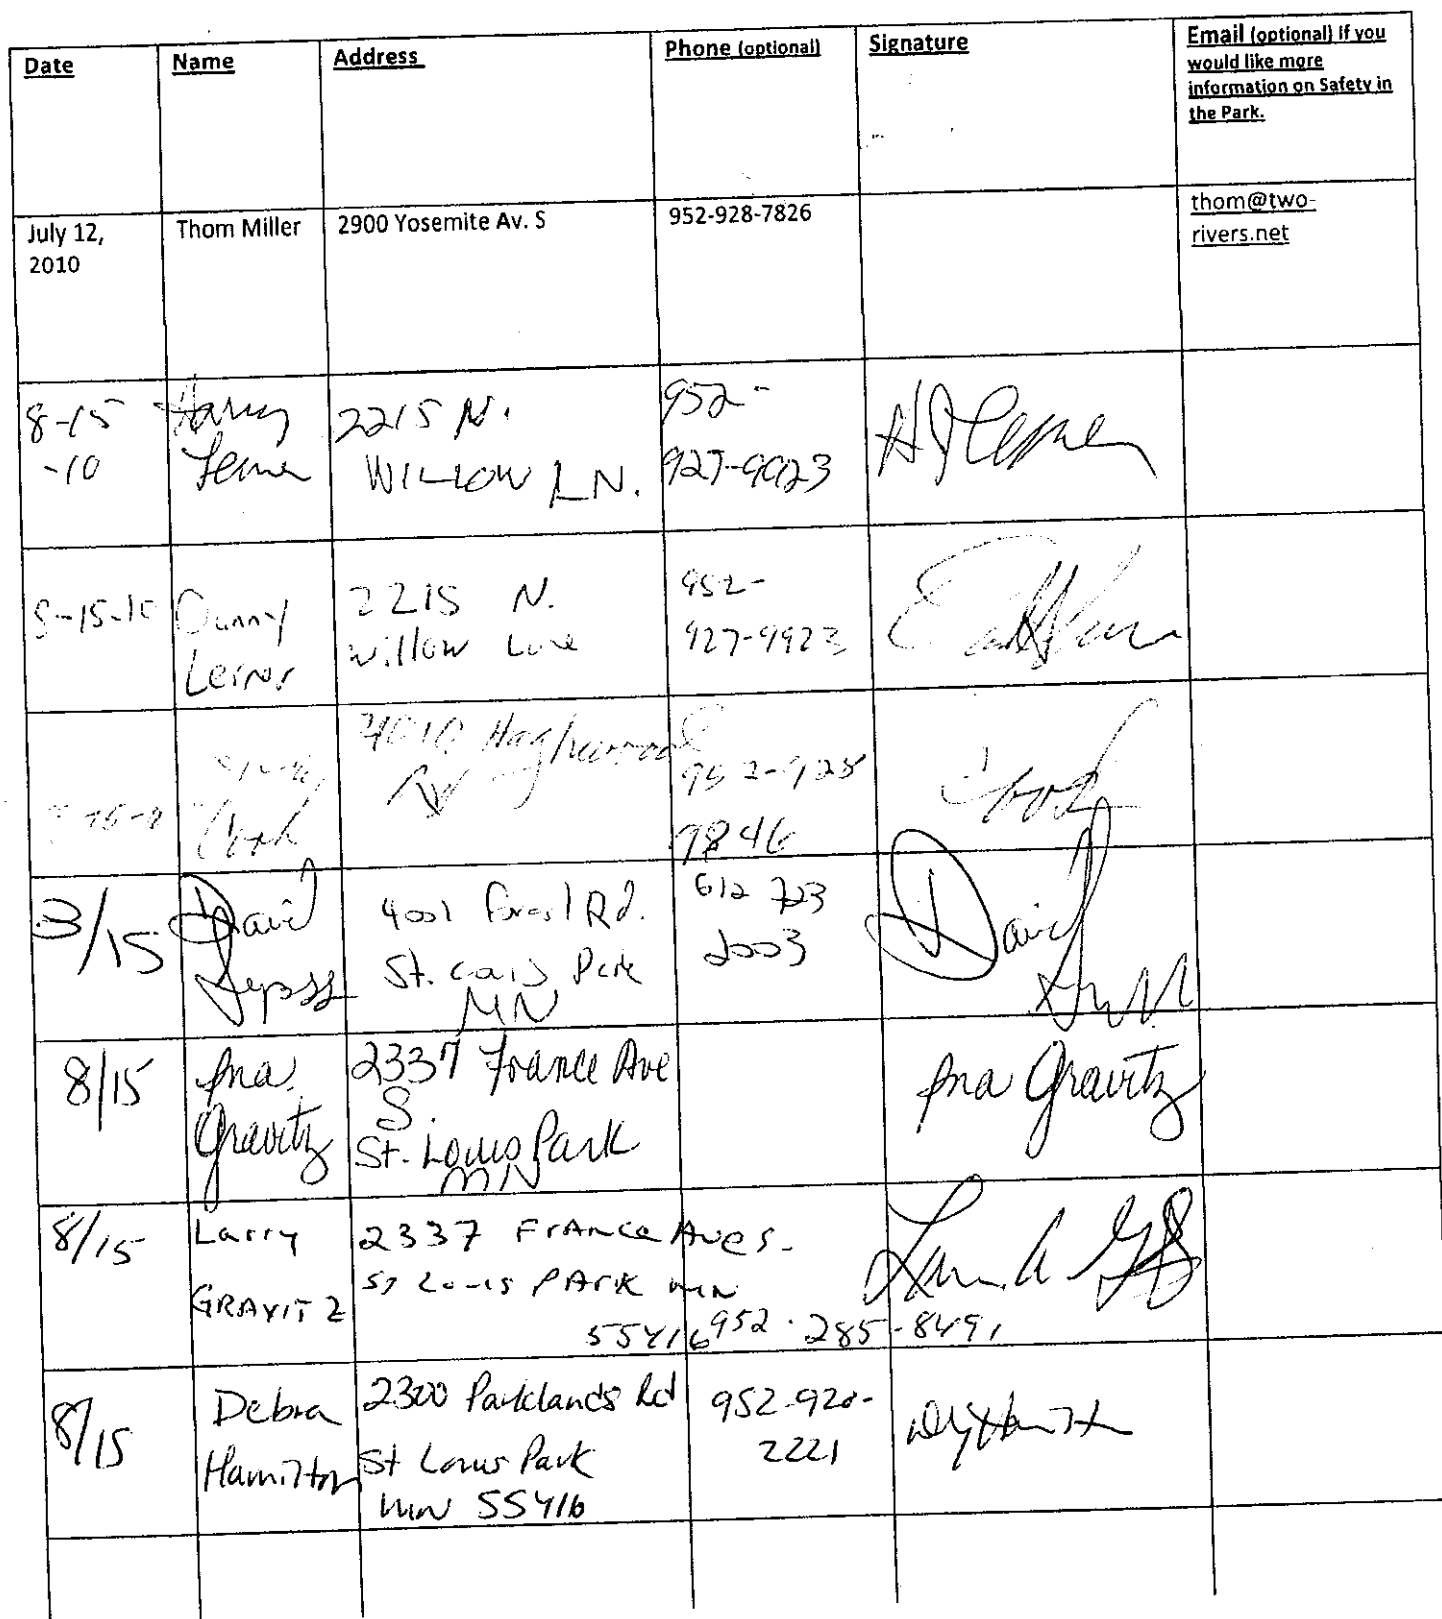 Date Name Address Phone (optional) Signature Email (optional) If you
would like more
information on Safety in
the Park.
July 12,
2010
Thom Miller
2900 Yosemite Av. S
952-928-7826
thom@two-
rivers.net
8-15
-10
Harry
2215 N.
WILLOW LN.
952-
927-9923
8-15-10
Danny
Lerner
2215 N.
Willow Lane
952-
927-9923
952-925
9846
8/15
David
4001 Forest Rd.
St. Louis Park
MN
612 723
2003
David
8/15
Ina
Gravitz
2337 France Ave
S.
St. Louis Park
MN
Ina Gravitz
8/15
Larry
GRAVITZ
2337 France Ave S.
ST Louis PARK MN
55416
952-285-8491
8/15
Debra
Hamilton
2300 Parklands Rd
St Louis Park
MN 55416
952-920-
2221